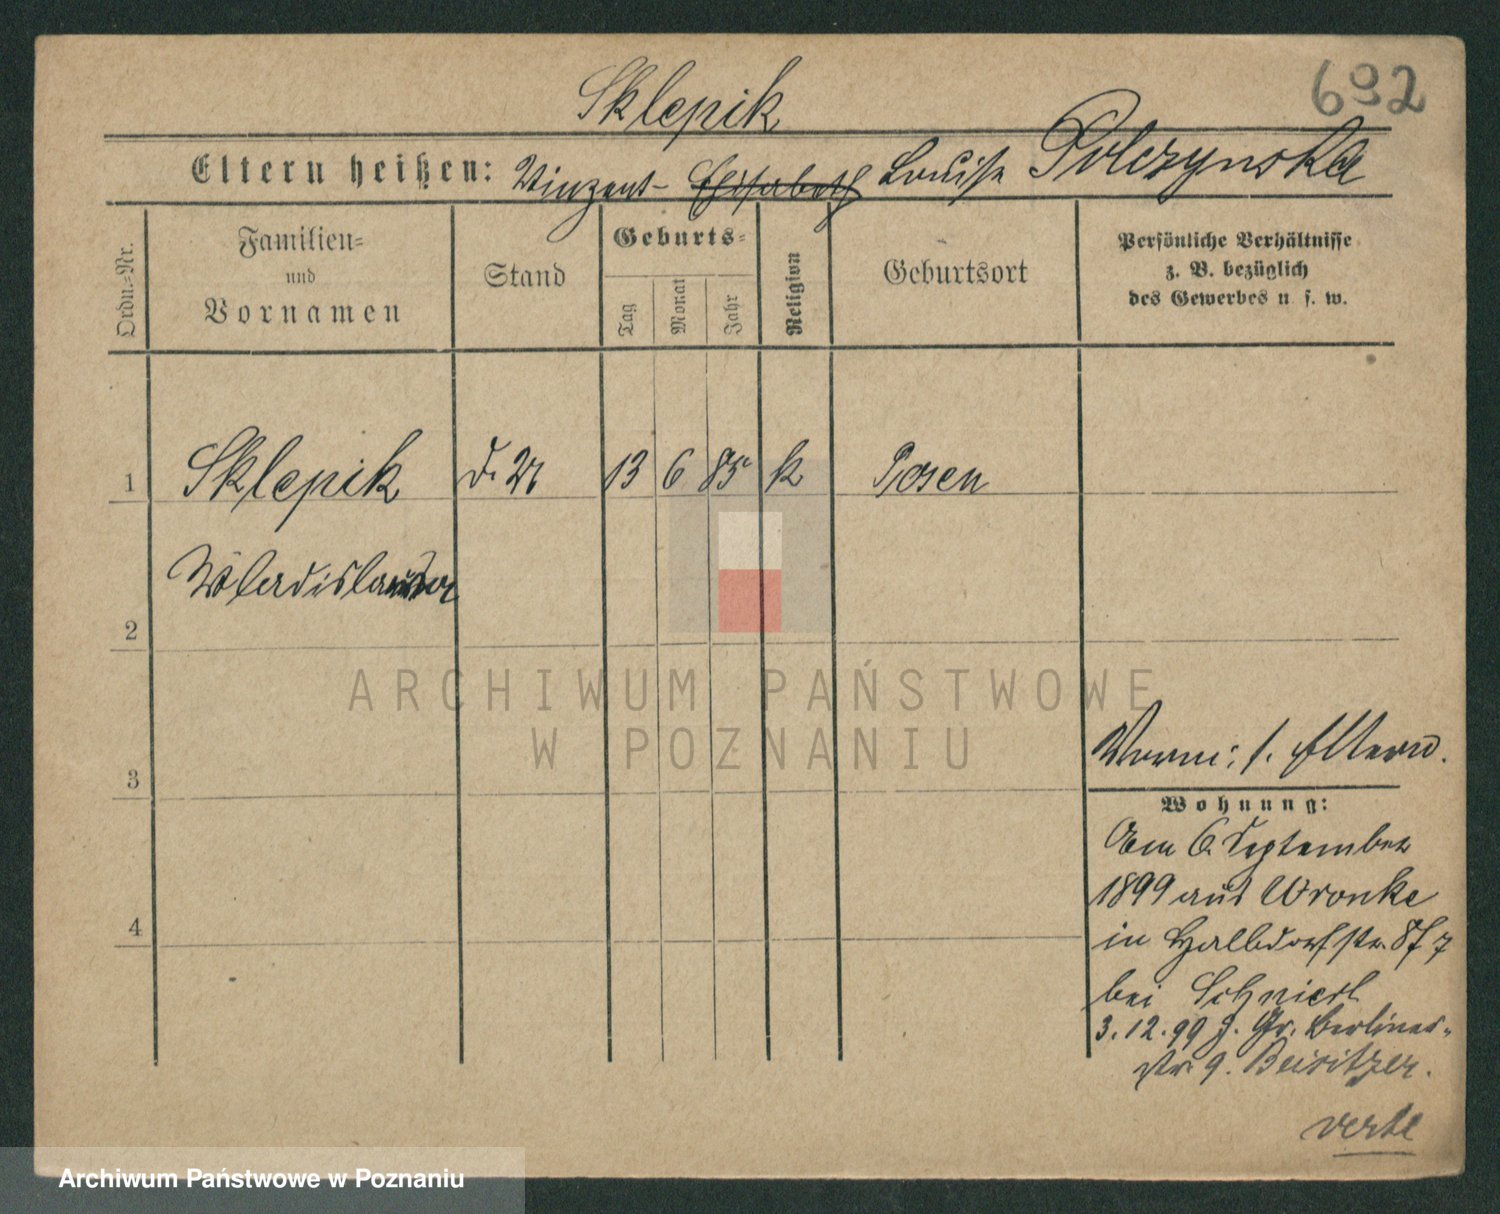 692
Sklepik
Eltern heißen: Vinzent - Elisabeth Louise Polczynska
Ordn.-Nr.
Familien-
und
Vornamen
Stand
Geburts-
Tag
Monat
Jahr
Religion
Geburtsort
Persönliche Verhältnisse
z. B. bezüglich
des Gewerbes u. s. w.
1 Sklepik 13 6 85 k Posen
Wladislawa
2
3
4
Vorm: s. Eltern.
Wohnung:
Am 6. September
1899 aus Wronke
in Halbdorfstr. 8
bei
3.12.99 Gr. Berliner-
str. 9. Beisitzer.
verte
ARCHIWUM PAŃSTWOWE
W POZNANIU
Archiwum Państwowe w Poznaniu